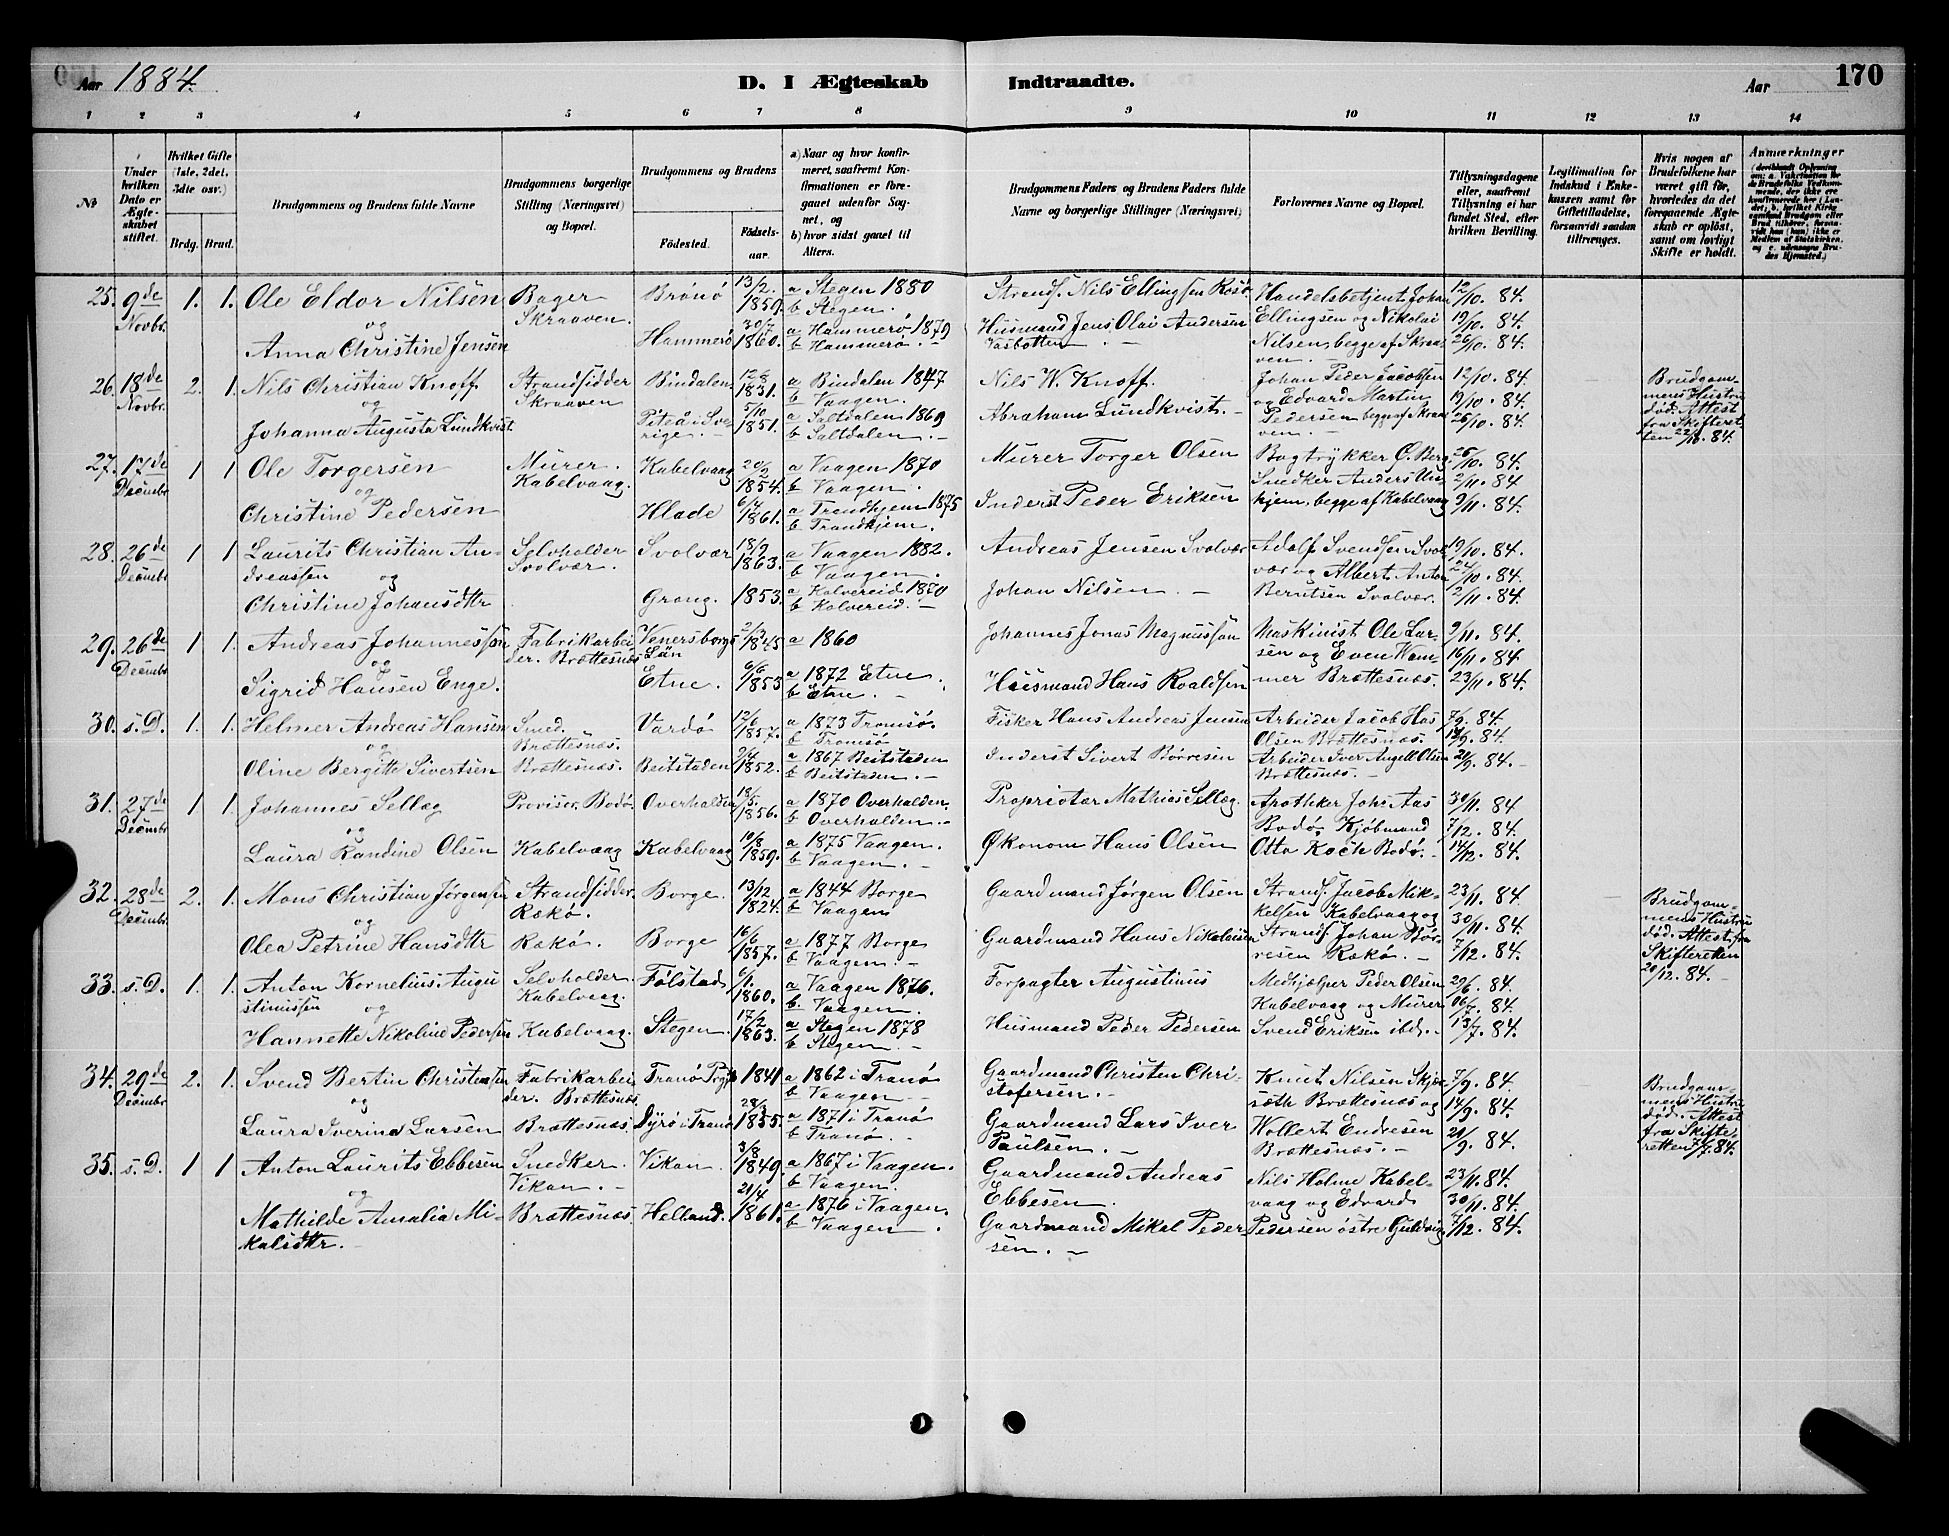 Aar 1884.
D. I Ægteskab Indtraadte.
Aar 170
1 2 3 4 5 6 7 8 9 10 11 12 13 14
No
Under hvilken Dato er Ægteskabet stiftet.
Hvilket Gifte (1ste, 2det, 3die osv.)
Brdg. Brud.
Brudgommens og Brudens fulde Navne
Brudgommens borgerlige Stilling (Næringsvei) og Bopæl.
Brudgommens og Brudens
Fødested.
Fødselsaar.
a) Naar og hvor konfirmeret, saafremt Konfirmationen er foregaaet udenfor Sognet, og
b) hvor sidst gaaet til Alters.
Brudgommens Faders og Brudens Faders fulde Navne og borgerlige Stillinger (Næringsvei)
Forlovernes Navne og Bopæl.
Tillysningsdagene eller, saafremt Tillysning ei har fundet Sted, efter hvilken Bevilling.
Legitimation for Indskud i Enkekassen samt for Giftetilladelse, forsaavidt saadan tiltrænges.
Hvis nogen af Brudefolkene har været gift før, hvorledes da det foregaaende Ægteskab er opløst, samt om lovligt Skifte er holdt.
Anmærkninger
25. 9de Novbr. 1. 1. Ole Eldor Nilsen
og
Anna Christine Jensen
Bager
Skraaven.
Brønø
Hammerø
13/2. 1859.
30/7 1860.
a Stegen 1880
b Stegen.
a Hammerø 1879
b Hammerø. -
Strands. Nils Ellingsen
Husmand Jens Olai Andersen
Vasbotten. -
Handelsbetjent Johan
Ellingsen og Nikolai
Nilsen, begge af Skraaven. -
12/10. 84.
19/10. 84.
26/10. 84.
26. 18de Novbr. 2. 1. Nils Christian Knoff
og
Johanna Augusta Lundkvist
Strandsidder
Skraaven
Bindalen
Piteå i Sverige. -
1831.
5/10 1851.
a Bindalen 1847
b Vaagen.
a Saltdalen 1869
b Saltdalen. -
Nils W. Knoff.
Abraham Lundkvist. -
Johan Peder Jacobsen
og Edvard Martin
Pedersen, begge af Skraaven. -
12/10. 84.
19/10. 84.
26/10. 84.
Brudgommens Hustru
død. Attest
fra Skifteretten 84.
27. 17de Decmbr 1 1 Ole Torgersen
og
Christine Pedersen
Murer.
Kabelvaag.
Kabelvaag
Hlade
20/2 1854.
1861.
a Vaagen 1870
b Vaagen.
a Trondhjem 1875
b Trondhjem.
Murer Torger Olsen
Inderst Peder Eriksen
Bogtrykker O. Berg,
Snedker Anders
begge af Kabelvaag
26/10. 84.
2/11. 84
9/11. 84.
28. 26de Decmbr 1 1 Laurits Christian Andreassen
og
Christine Johansdttr
Selvholder
Svolvær.
Svolvær
Grong.
18/9 1863.
1853.
a Vaagen 1882.
b Vaagen.
a Kolvereid 1870
b Kolvereid. -
Andreas Jensen Svolvær
Johan Nilsen. -
Adolf Svendsen Svolvær og Albert Anton
Berntsen Svolvær.
19/10. 84.
24/10. 84.
2/11. 84.
29. 26de Decmbr 1 1 Andreas Johannessen
og
Sigrid Hansen Enge.
Fabrikarbeider. Brættesnæs
Venersborgs Län
Etne.
1845
6/6 1853
a 1860
a 1872 Etne.
b Etne. -
Johannes Jonas Magnussen
Husmand Hans Roaldsen
Maskinist Ole Larsen og Even
Brættesnæs.
9/11. 84.
16/11. 84
23/11. 84.
30. s. D. 1. 1. Helmer Andreas Hansen
og
Oline Bergitte Sivertsen
Smed.
Brættesnæs.
Brættesnæs.
Vardø
Beitstaden
12/6 1857.
1852.
a 1873 Tromsø.
b Tromsø
a 1867 Beitstaden
b Beitstaden. -
Fisker Hans Andreas Jensen
Inderst Sivert Børresen
Arbeider Jacob
Olsen Brættesnæs.
Arbeider Iver Angell Olsen
Brættesnæs. -
7/9. 84.
14/9. 84.
21/9. 84. -
31. 27de Decmbr 1 1. Johannes Sellæg
og
Laura Randine Olsen
Provisor, Bodø.
Kabelvaag
Overhalden
Kabelvaag
18/5. 1856.
10/8 1859.
a 1870 Overhalden.
b Overhalden. -
a 1875 Vaagen.
b Vaagen. -
Proprietær Mathias Sellæg.
Økonom Hans Olsen
Apotheker Johs Aas
Bodø, Kjøbmand
Otto Koch Bodø. -
30/11. 84
7/12. 84.
14/12. 84.
32. 28de Decmbr 2. 1. Mons Christian Jørgensen
og
Olea Petrine Hansdttr
Strandsidder.
Rækø.
Rækø.
Borge.
Borge
13/12 1824.
16/6 1857.
a 1844 Borge
b Vaagen
a 1877 Borge
b Vaagen. -
Gaardmand Jørgen Olsen
Gaardmand Hans Nikolaisen
Strands. Jacob Mikkelsen Kabelvaag og
Strands. Johan Børresen Rækø. -
23/11. 84.
30/11. 84.
7/12. 84.
Brudgommens Hustru
død. Attest fra
Skifteretten
20/12. 84. -
33. s. D. 1. 1. Anton Kornelius Augustinussen
og
Hannette Nikoline Pedersen
Selvholder.
Kabelvaag.
Kabelvaag.
Følstad
Stegen.
6/1. 1860.
17/2 1863.
a Vaagen 1876.
b Vaagen.
a Stegen 1878
b Stegen. -
Forpagter Augustinus
Husmand Peder Pedersen
Medhjælper Peder Olsen
Kabelvaag og Murer
Svend Eriksen ibd. -
29/6. 84.
06/7. 84.
13/7. 84.
34. 29de Decmbr 2. 1. Svend Bertin Christensen
og
Laura Iverine Larsen
Fabrikarbeider. Brættesnæs.
Brættesnæs.
Tranø Prgjd
Dyrø i Tranø
1841
1855.
a 1862 i Tranø
b Vaagen -
a 1871 i Tranø
b Tranø. -
Gaardmand Christen Christofersen. -
Gaardmand Lars Iver
Paulsen. -
Knut Nilsen
Brættesnæs og
Wollert Endresen
Brættesnæs. -
7/9. 84.
14/9. 84.
21/9. 84.
Brudgommens Hustru
død. Attest
fra Skifteretten 84.
35. s. D. 1 1 Anton Laurits Ebbesen
og
Mathilde Amalia Mikalsdttr. -
Snedker.
Vikan. -
Brættesnæs
Vikan.
Helland.
3/8 1849
21/4 1861.
a 1867 i Vaagen.
b Vaagen.
a 1876 i Vaagen.
b Vaagen.
Gaardmand Andreas
Ebbesen.
Gaardmand Mikal Pedersen. -
Nils Holme Kabelvaag og Edvard
Pedersen østre Guldvig
23/11. 84.
30/11. 84.
7/12. 84.